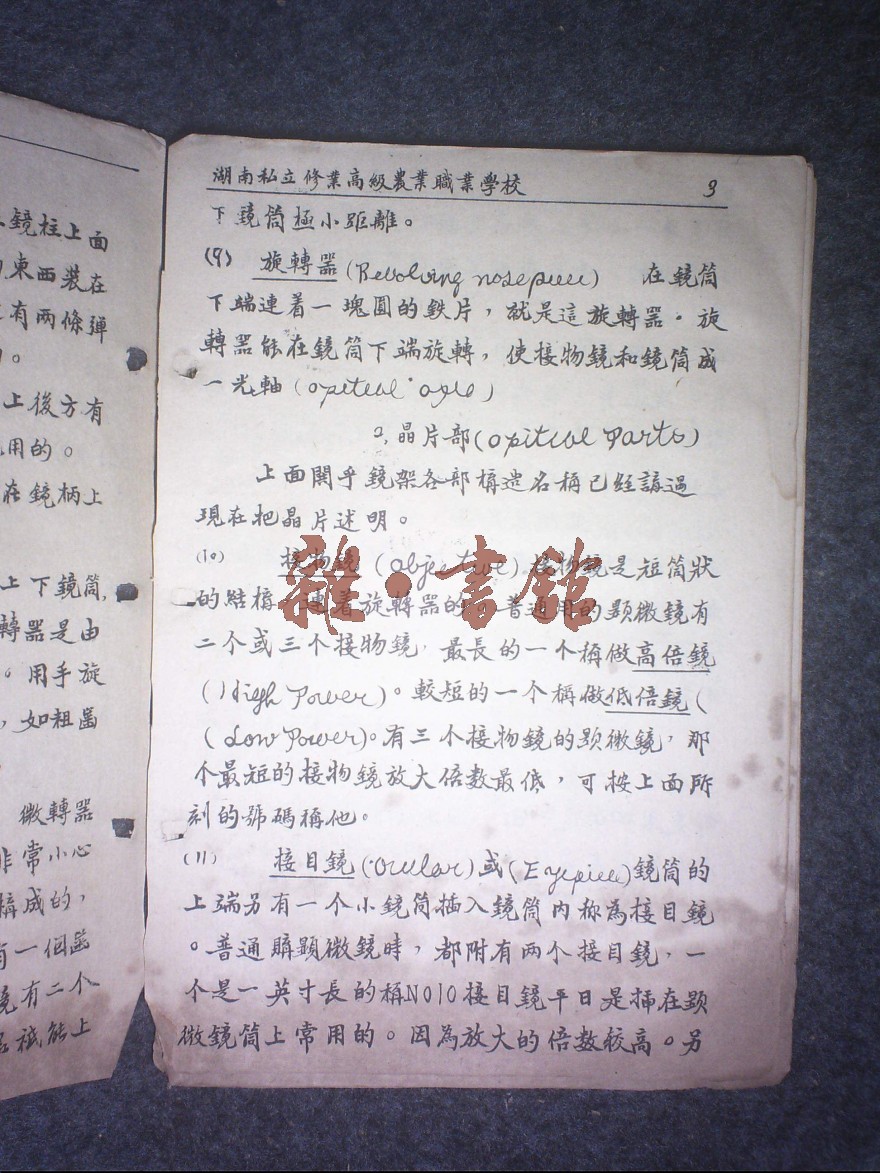 鏡柱上面
東西裝在
有兩條彈
。
上後方有
用的。
在鏡柄上
上下鏡筒,
轉器是由
。用手旋
,如粗齒
微轉器
非常小心
構成的,
有一個齒
鏡有二个
祗能上
湖南私立修業高級農業職業學校 9
下鏡筒極小距離。
(9) 旋轉器(Revolving nosepiece) 在鏡筒
下端連着一塊圓的鉄片，就是這旋轉器。旋
轉器能在鏡筒下端旋轉，使接物鏡和鏡筒成
一光軸(opitcal axle)
2,晶片部(opitcal Parts)
上面関乎鏡架各部構造名稱已經講過
現在把晶片述明。
(10) 接物鏡(objective)接物鏡是短筒狀
的結構 連着旋轉器的。普通用的顕微鏡有
二个或三个接物鏡，最長的一个稱做高倍鏡
(High Power)。較短的一个稱做低倍鏡(
(Low Power)。有三个接物鏡的顕微鏡，那
个最短的接物鏡放大倍數最低，可按上面所
刻的號碼稱他。
(11) 接目鏡(Ocular)或(Eyepiece)鏡筒的
上端另有一个小鏡筒插入鏡筒内称為接目鏡
。普通購顕微鏡時，都附有两个接目鏡，一
个是一英寸長的稱NO10接目鏡平日是插在顕
微鏡筒上常用的。因為放大的倍數較高。另
雜·書館